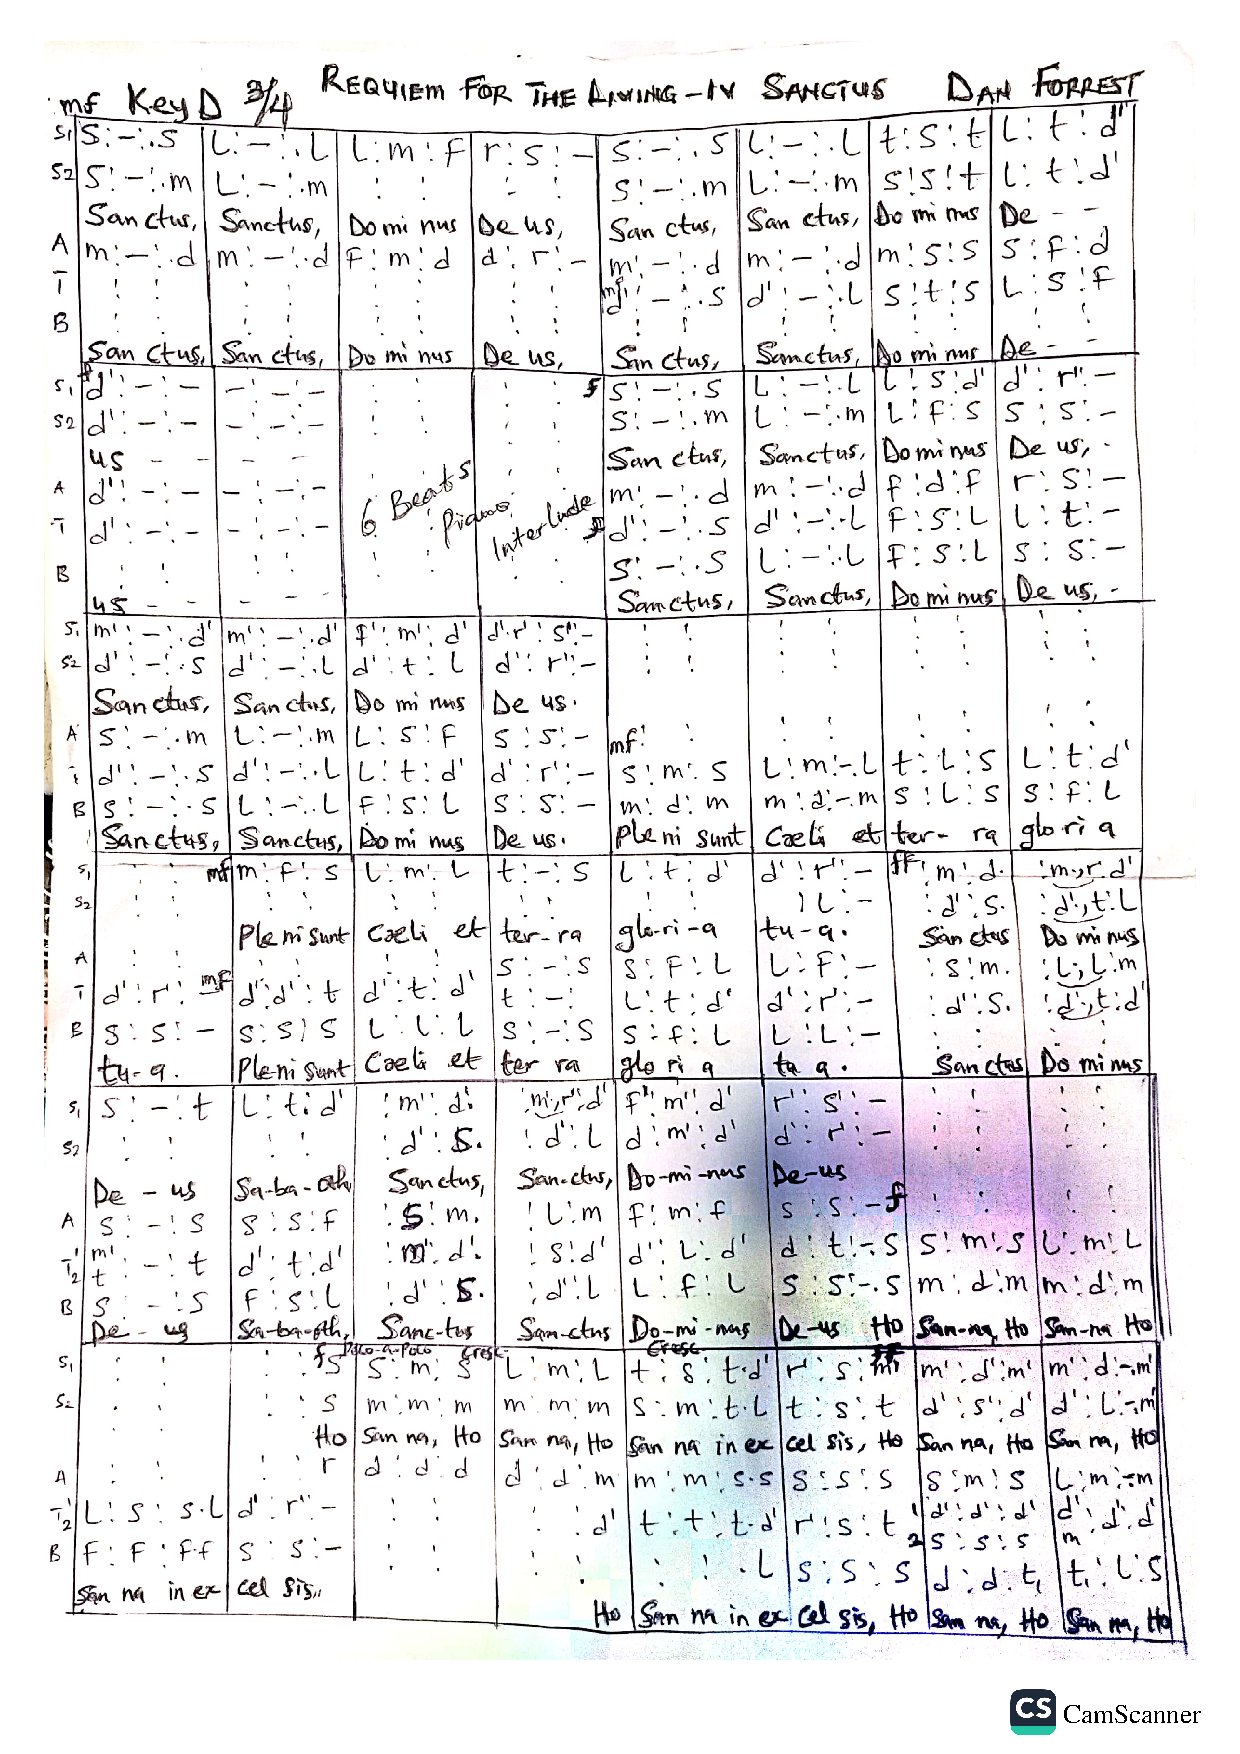 REQUIEM FOR THE LIVING-IV SANCTUS DAN FORREST
mf Key D 3/4
S1 S:-:.S L:-:.L L:m:f r:s:- S:-:.S L:-:.L t:S:t L:t:d'
S2 S:-:.m L:-:.m : : : : S:-:.m L:-:.m S:S:t L:t:d'
Sanctus, Sanctus, Do mi nus De us, San ctus, San ctus, Do mi nus De - -
A m:-:.d m:-:.d f:m:d d:r:- m:-:.d m:-:.d m:s:s s:f:d
T : : : : : : : : mf d':-:.S d':-:.L S:t:S L:S:f
B : : : : : : : : : : : : : : : :
San ctus, San ctus, Do mi nus De us, Sanctus, Sanctus, Do mi nus De - -
S1 f d':-:- -:-:- : : : : f S:-:.S L:-:.L L:S:d' d':r':-
S2 d':-:- -:-:- : : : : S:-:.m L:-:.m L:f:S S:S:-
us - - - - - San ctus, Sanctus, Do mi nus De us, -
A d':-:- -:-:- 6 Beats Piano Interlude m:-:.d m:-:.d f:d:f r:S:-
T d':-:- -:-:- f d':-:.S d':-:.L f:S:L L:t:-
B : : : : S:-:.S L:-:.L f:S:L S:S:-
us - - - - - Sanctus, Sanctus, Do mi nus De us, -
S1 m':-:.d' m':-:.d' f':m':d' d'.r':s':- : : : : : : : :
S2 d':-:.S d':-:.L d':t:L d':r':- : : : : : : : :
Sanctus, Sanctus, Do mi nus De us.
A S:-:.m L:-:.m L:S:f S:S:- mf: : : : : : : :
T d':-:.S d':-:.L L:t:d' d':r':- S:m:S L:m:-.L t:L:S L:t:d'
B S:-:.S L:-:.L f:S:L S:S:- m:d:m m:d:-.m S:L:S S:f:L
Sanctus, Sanctus, Do mi nus De us. Ple ni sunt Caeli et ter- ra glo ri a
S1 : : mf m:f:S L:m:L t:-:S L:t:d' d':r':- ff :m':d'. :m',r'.d'
S2 : : : : : : : : : : :L:- :d':S. :d',t:L
Ple ni sunt Caeli et ter-ra glo-ri-a tu-a. Sanctus Do mi nus
A : : : : : : S:-:S S:f:L L:f:- :S:m. :L,L:m
T d':r': mf d':d':t d':t:d' t:-: L:t:d' d':r':- :d':S. :d',t:d'
B S:S:- S:S:S L:L:L S:-:S S:f:L L:L:- : : : :
tu-a. Ple ni sunt Caeli et ter ra glo ri a tu a. Sanctus Do mi nus
S1 S:-:t L:t:d' :m':d'. :m',r',d' f':m':d' r':s':- : : : :
S2 : : : : :d':S. :d':L d':m':d' d':r':- : : : :
De - us Sa-ba-oth, Sanctus, San-ctus, Do-mi-nus De-us
A S:-:S S:S:f :S:m. :L:m f:m:f S:S:- f : : : :
T1 2 m' t:-:t d':t:d' :m':d'. :S:d' d':L:d' d':t:-.S S:m:S L:m:L
B S:-:S f:S:L :d':S. :d':L L:f:L S:S:-.S m:d:m m:d:m
De - us Sa-ba-oth, Sanc-tus San-ctus Do-mi-nus De-us Ho San-na, Ho San-na Ho
S1 : : f Poco-a-Poco : :S S:m:S Cresc. L:m:L Cresc t:S:t.d' r':S:ff m' m':d':m' m':d':-.m'
S2 : : : :S m:m:m m:m:m S:m:t.L t:S:t d':S':d' d':L:-.m'
Ho San na, Ho San na, Ho San na in ex cel sis, Ho San na, Ho San na, Ho
A : : : :r d:d:d d:d:m m:m:S.S S:S:S S:m:S L:m:-.m
T1 2 L:S:S.L d':r':- : : : :d' t:t:t.d' r':S:t 1 d':d':d' 2 S:S:S d' m:d':d'
B f:f:f.f S:S:- : : : : : :.L S:S:S d:d:t, t,:L:S
San na in ex cel sis.. Ho San na in ex cel sis, Ho San na, Ho San na, Ho
CS CamScanner